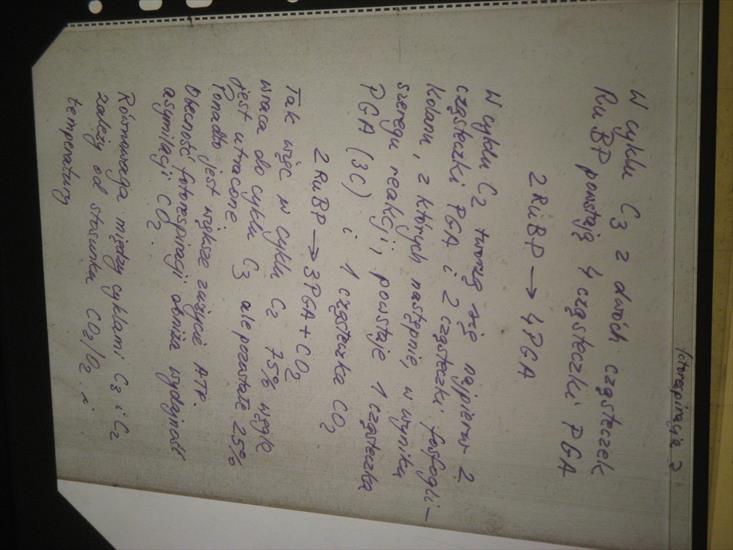 fotorespiracja 2
W cyklu C3 z dwóch cząsteczek
RuBP powstają 4 cząsteczki PGA
2RuBP → 4PGA
W cyklu C2 tworzą się najpierw 2
cząsteczki PGA i 2 cząsteczki fosfogli-
kolanu, z których następnie, w wyniku
szeregu reakcji, powstaje 1 cząsteczka
PGA (3C) i 1 cząsteczka CO2
2RuBP → 3PGA + CO2
Tak więc w cyklu C2 75% węgla
wraca do cyklu C3 ale pozostałe 25%
jest utracone.
Ponadto jest większe zużycie ATP.
Obecność fotorespiracji obniża wydajność
asymilacji CO2.
Równowaga między cyklami C3 i C2
zależy od stosunku CO2/O2 i
temperatury